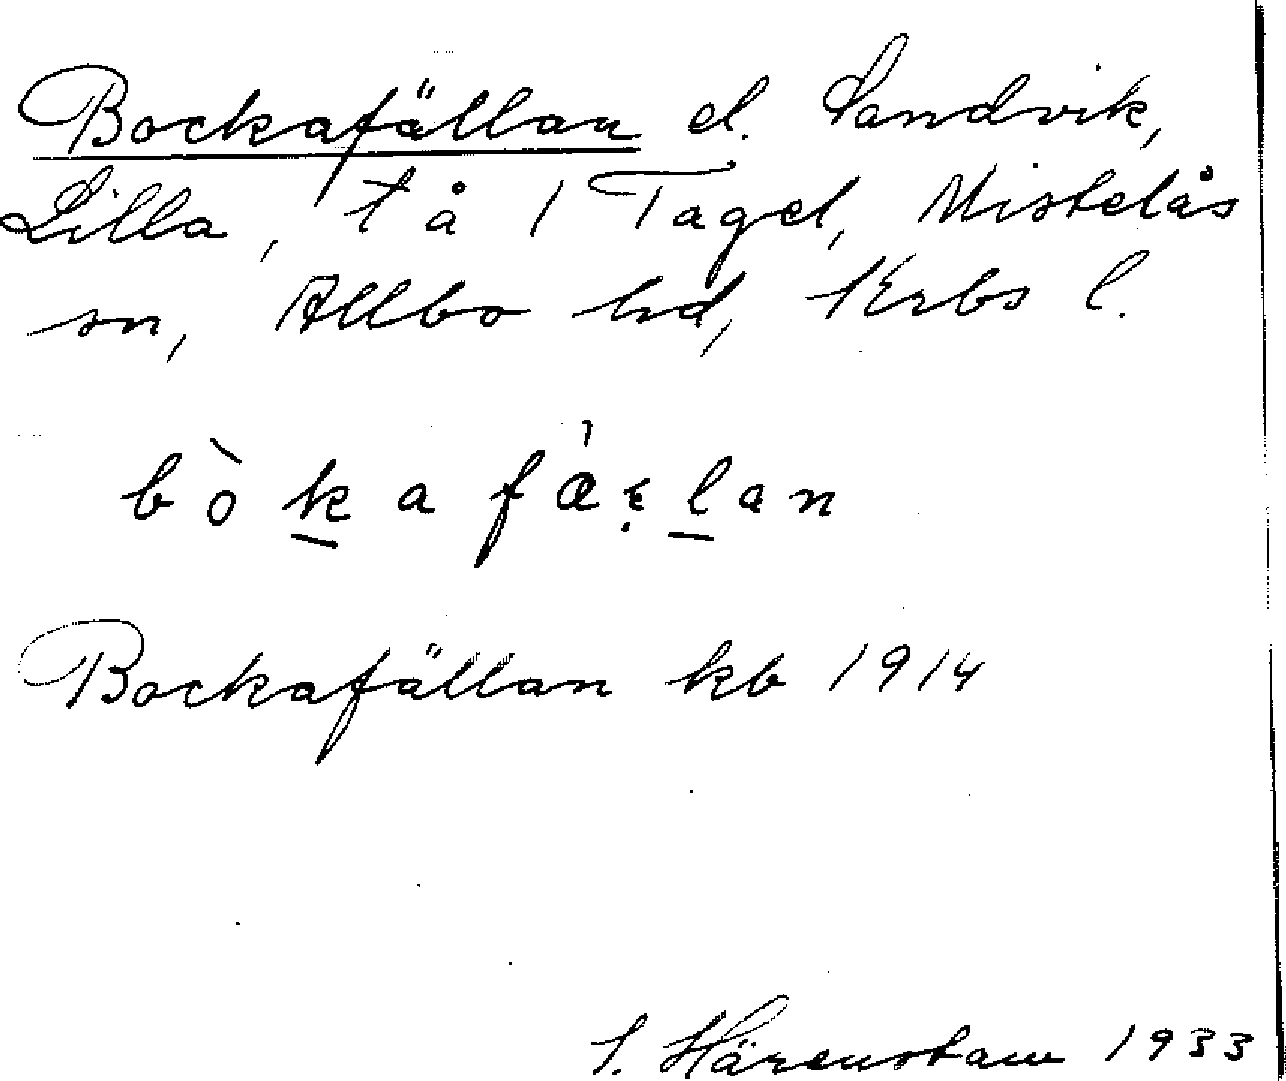 Bockafällan el. Sandvik,
Lilla, t å 1 Tagel, Mistelås
sn, Allbo hd, Krbs l.
Bockafällan kb 1914
S. Härenstam 1933